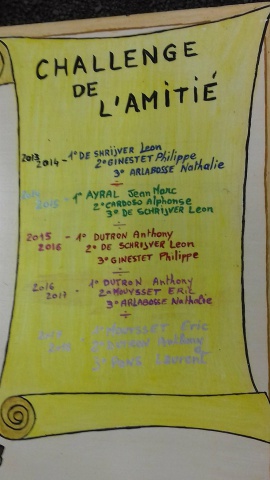 CHALLENGE
DE
L'AMITIÉ
2013 2014 - 1° DE SHRIJVER Leon
2° GINESTET Philippe
3° ARLABOSSE Nathalie
÷
2014 2015 - 1° AYRAL Jean Marc
2° CARDOSO Alphonse
3° DE SCHRIJVER Leon
÷
2015 2016 - 1° DUTRON Anthony
2° DE SCRIJVER Leon
3° GINESTET Philippe
÷
2016 2017 - 1° DUTRON Anthony
2° MOUYSSET ERIC
3° ARLABOSSE Nathalie
÷
1° MOUYSSET Eric
2° DUTRON Anthony
3° PONS Laurent